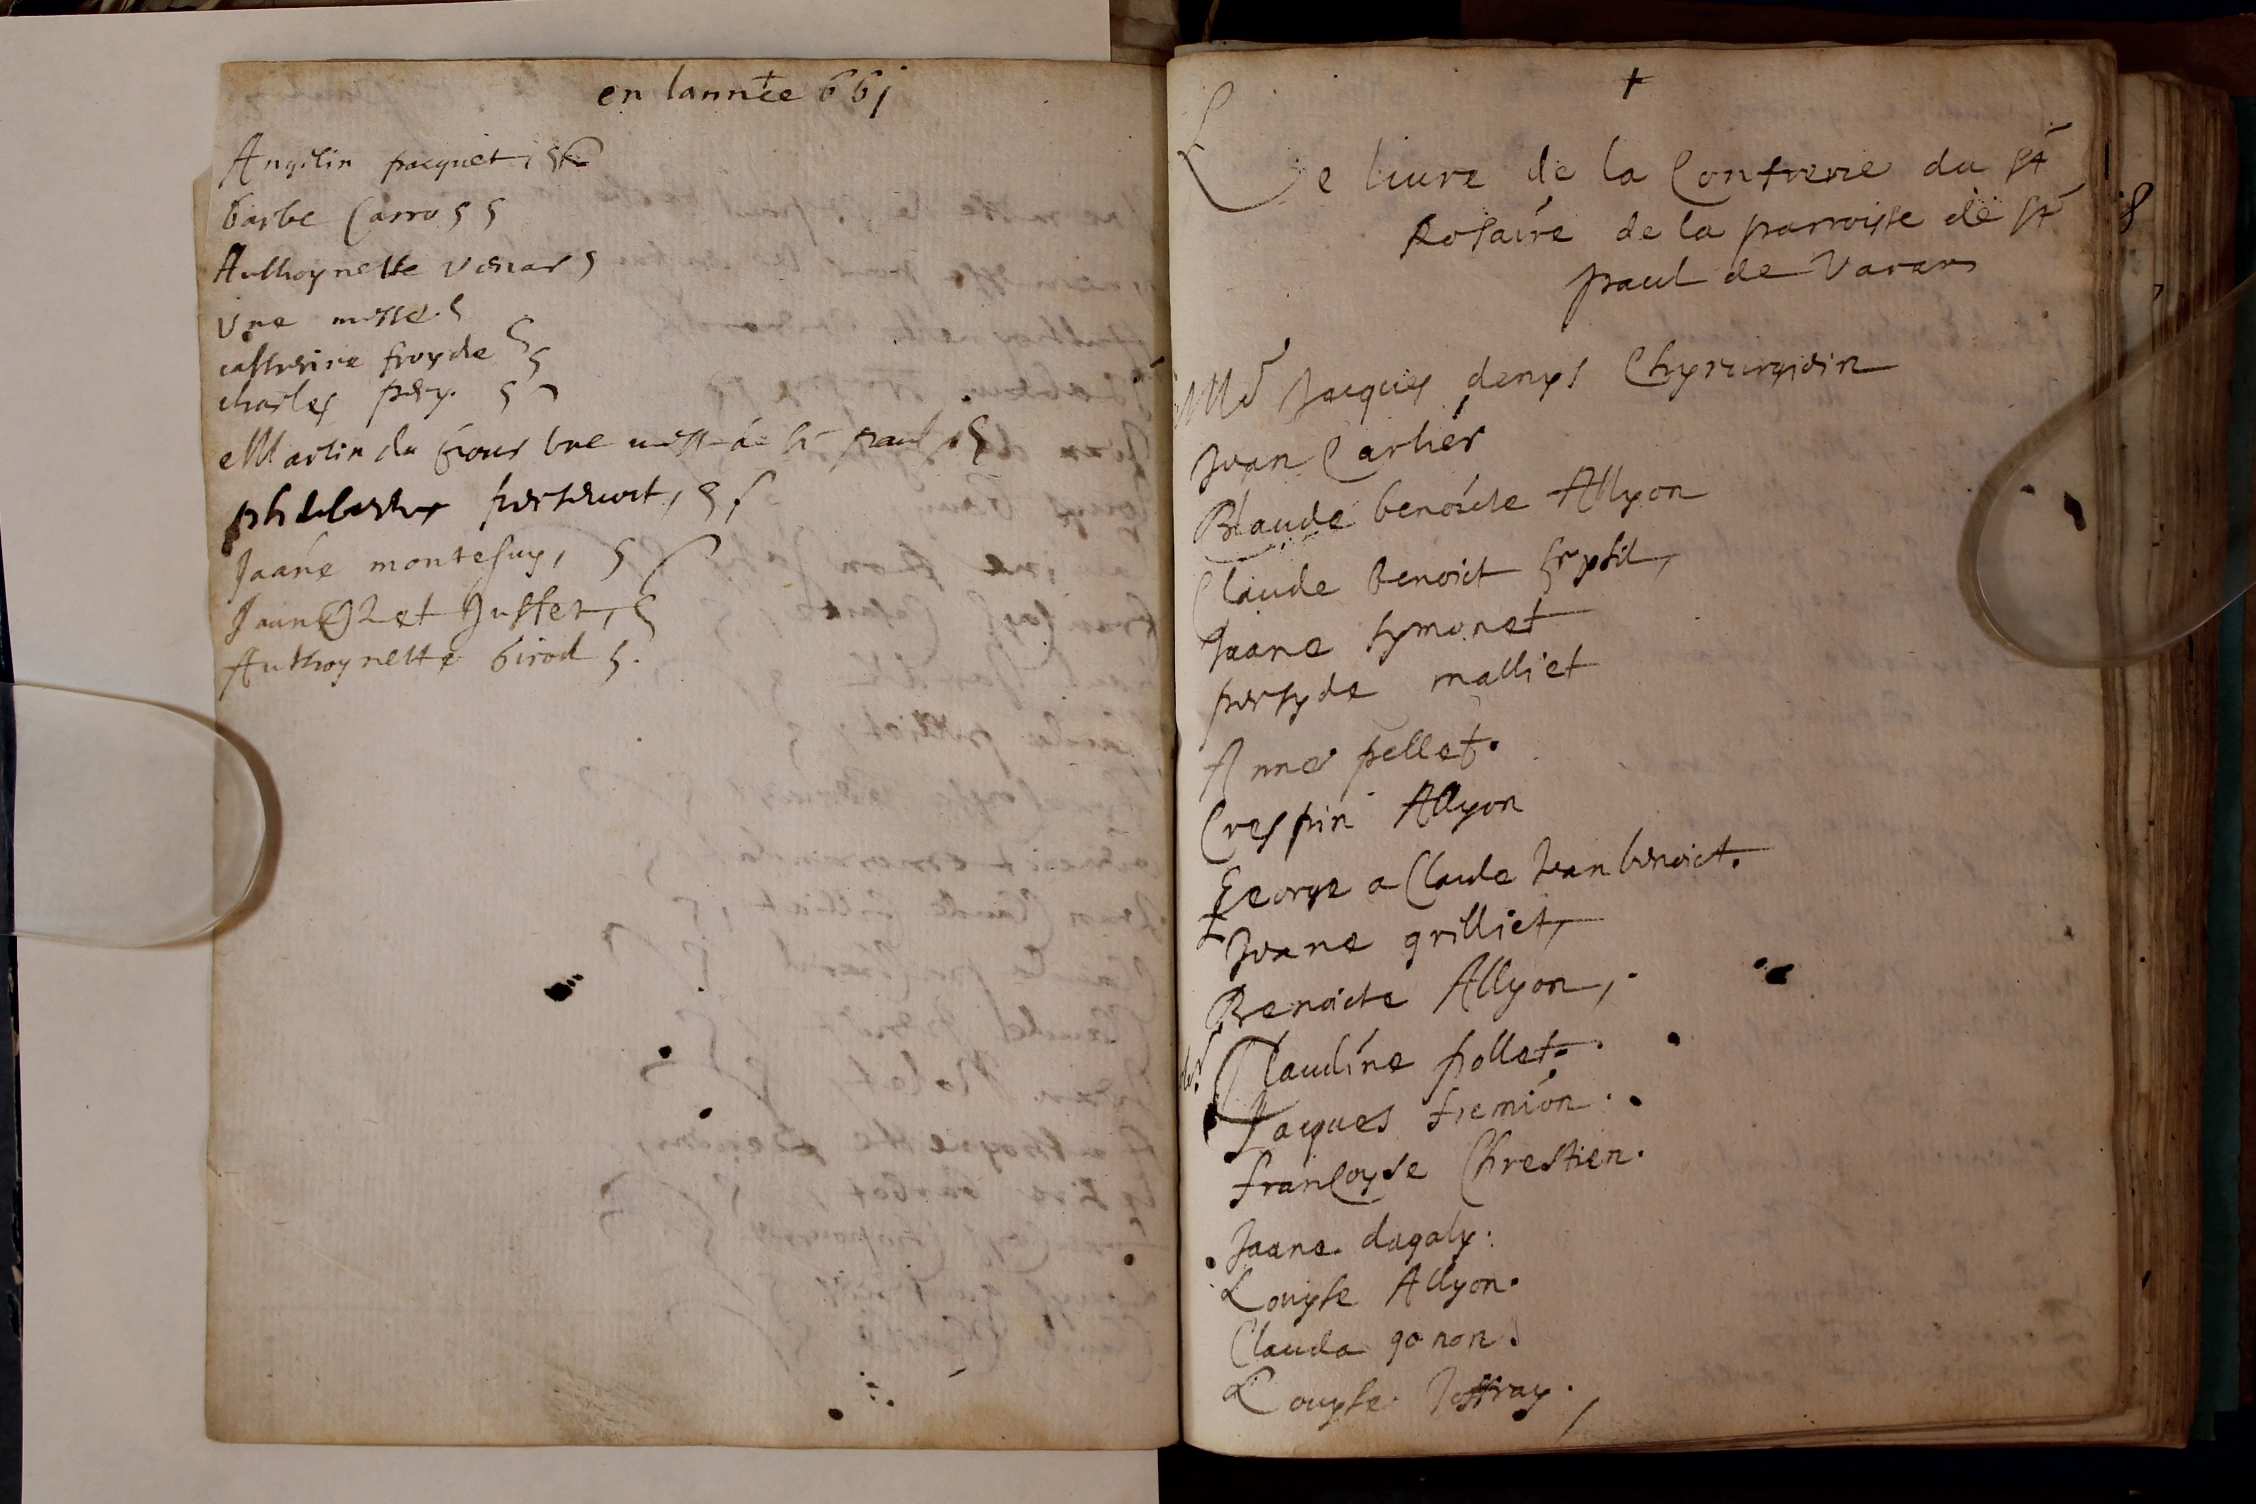 en lannee 661
Angelin pacquet
barbe Carro
Anthoynette venar
Une messe
catherine froyde
charles pery.
Martin du une messe a st paul
Jaane montesuy,
Jaune Juffet,
Anthoynette birod
+
Le liure de la Confrerie du st
Rosaire de la parroisse de st
paul de Varax
Me Jacques denys Chyrurgien
Jean Carlier
Blaude benoicte Allyon
Claude benoict
Jaane symonet
persyde malliet
Anne pellet.
Crespin Allyon
George a Claude Jean benoict.
Jeane grilliet,
Benoicte Allyon,
Claudine pollet.
Jacques fremion.
francoyse Chrestien.
Jaane dagaly.
Louyse Allyon.
Clauda gonon.
Louyse Joffray.